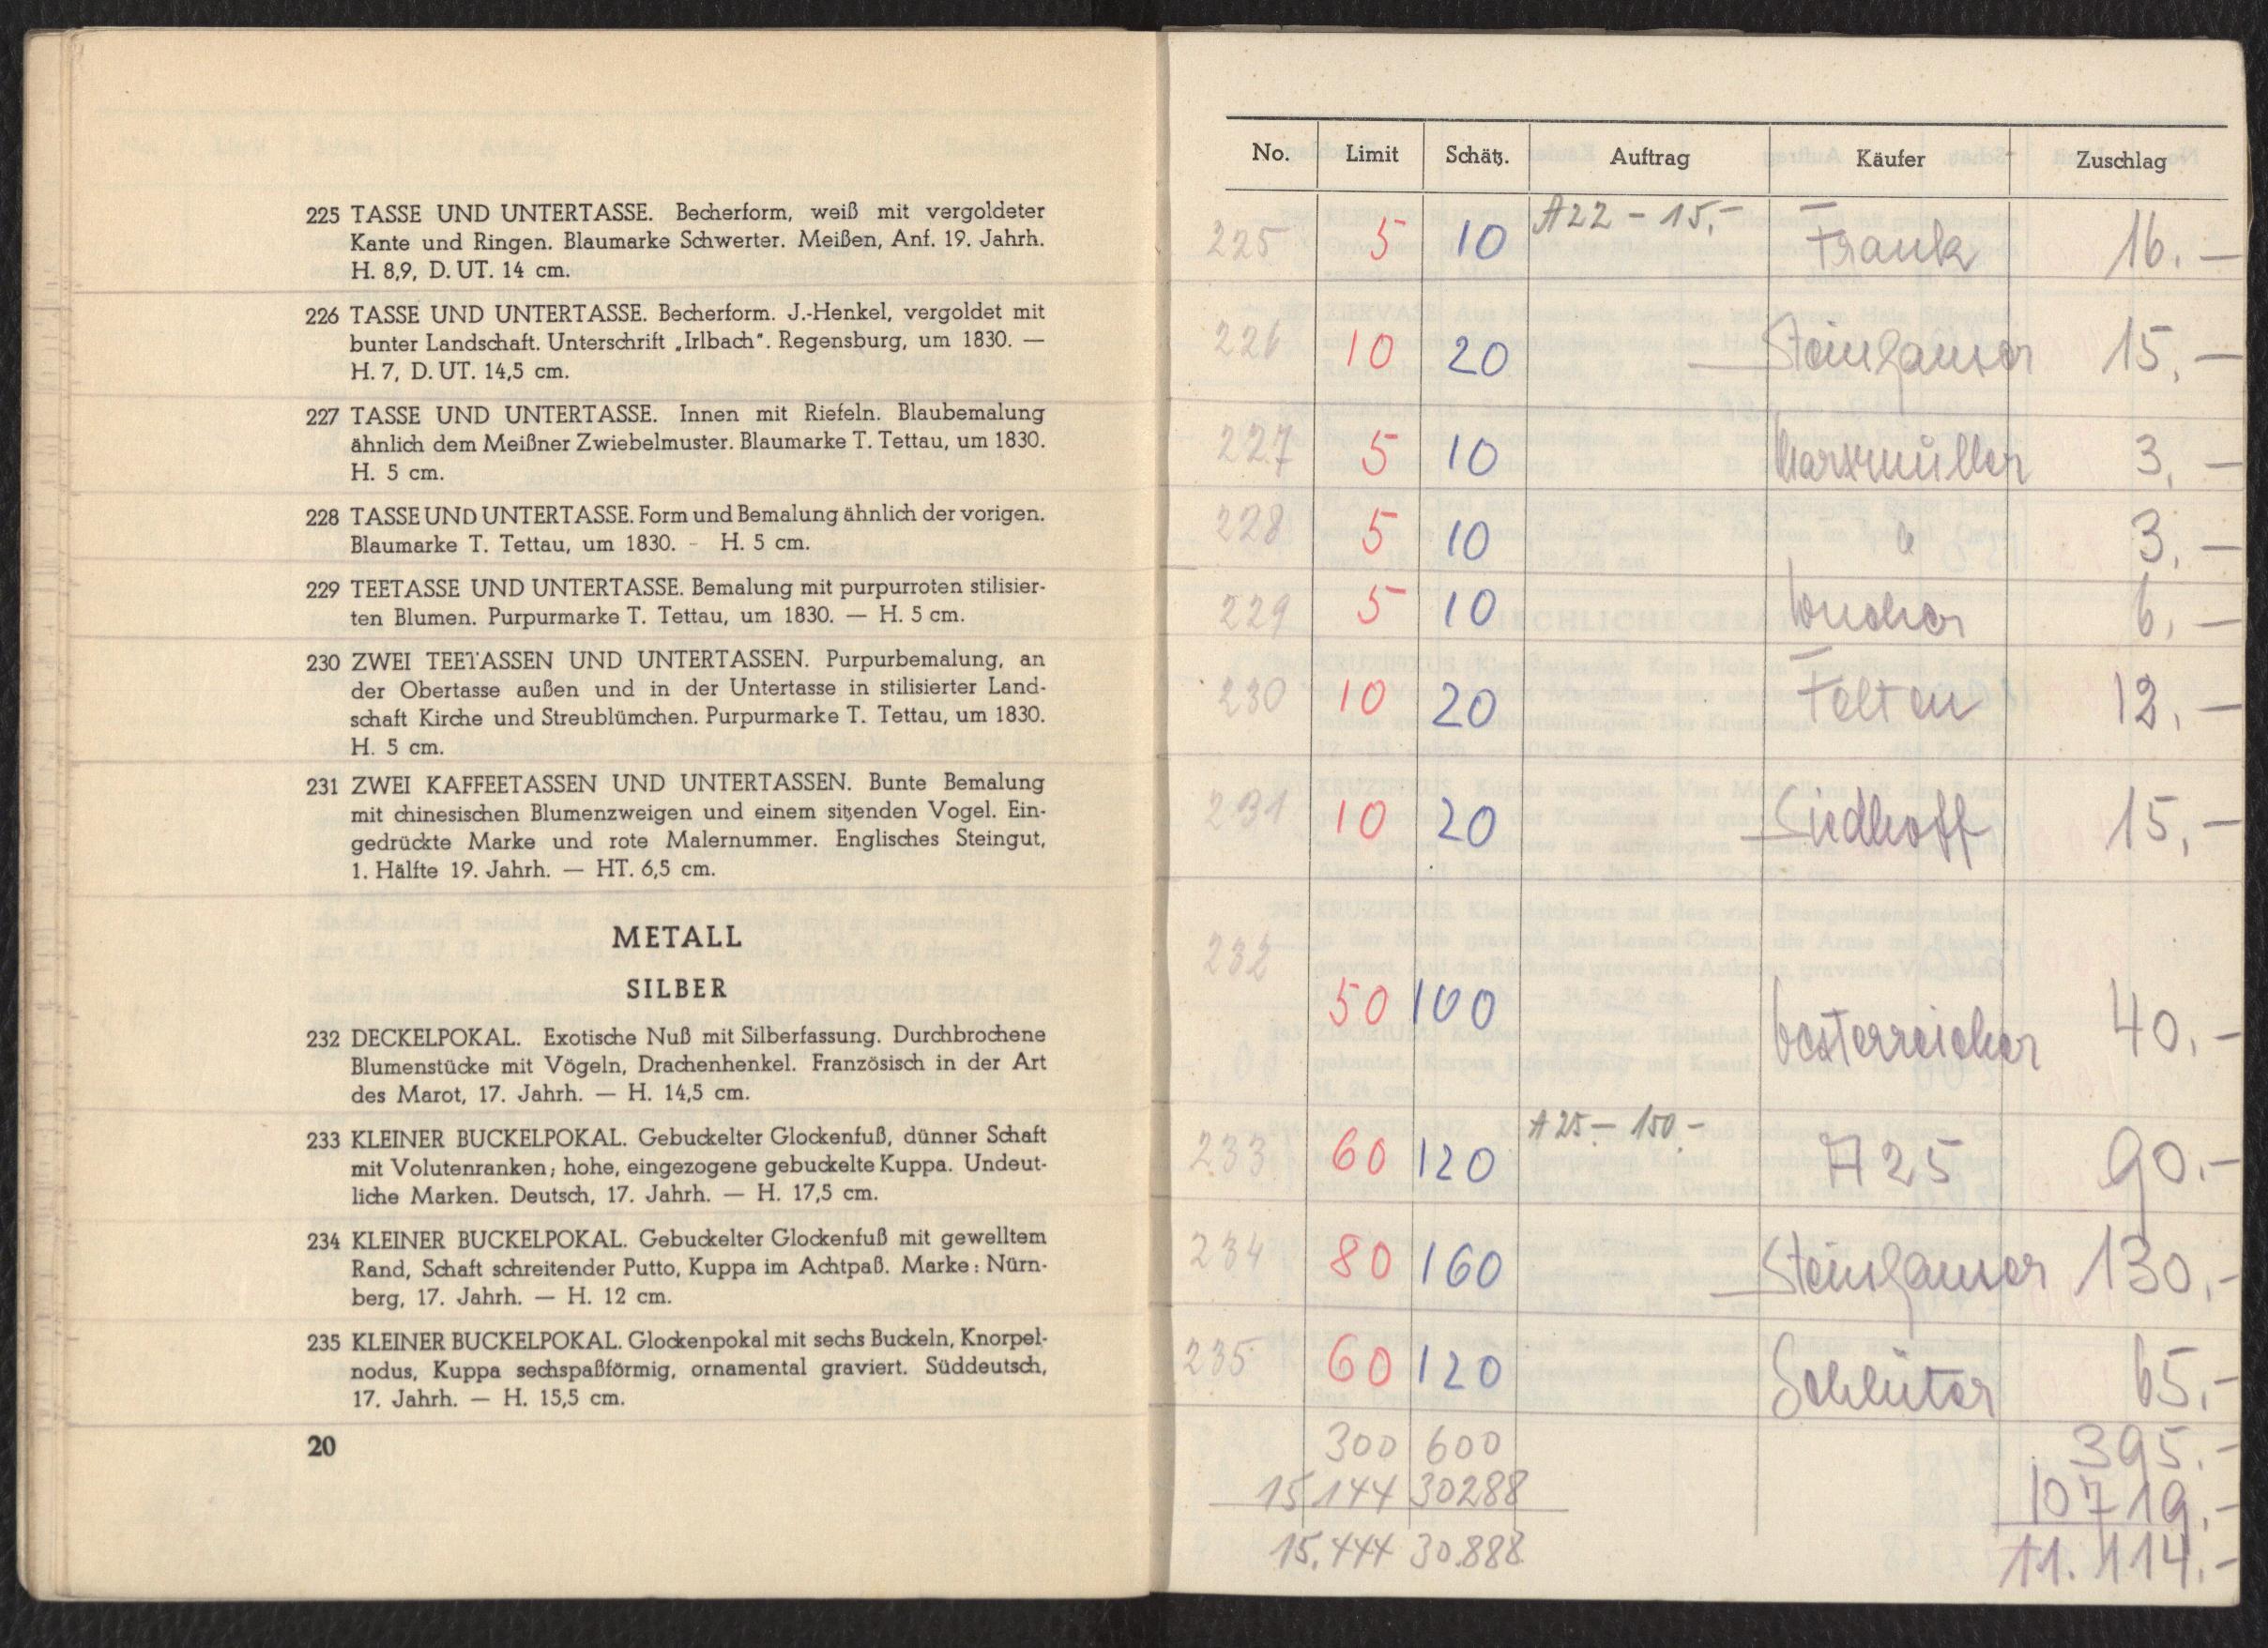 225 TASSE UND UNTERTASSE. Becherform, weiß mit vergoldeter
Kante und Ringen. Blaumarke Schwerter. Meißen, Anf. 19. Jahrh.
H. 8,9, D. UT. 14 cm.
226 TASSE UND UNTERTASSE. Becherform. J.-Henkel, vergoldet mit
bunter Landschaft. Unterschrift „Irlbach". Regensburg, um 1830. —
H. 7, D. UT. 14,5 cm.
227 TASSE UND UNTERTASSE. Innen mit Riefeln. Blaubemalung
ähnlich dem Meißner Zwiebelmuster. Blaumarke T. Tettau, um 1830.
H. 5 cm.
228 TASSE UND UNTERTASSE. Form und Bemalung ähnlich der vorigen.
Blaumarke T. Tettau, um 1830. - H. 5 cm.
229 TEETASSE UND UNTERTASSE. Bemalung mit purpurroten stilisier-
ten Blumen. Purpurmarke T. Tettau, um 1830. — H. 5 cm.
230 ZWEI TEETASSEN UND UNTERTASSEN. Purpurbemalung, an
der Obertasse außen und in der Untertasse in stilisierter Land-
schaft Kirche und Streublümchen. Purpurmarke T. Tettau, um 1830.
H. 5 cm.
231 ZWEI KAFFEETASSEN UND UNTERTASSEN. Bunte Bemalung
mit chinesischen Blumenzweigen und einem sitzenden Vogel. Ein-
gedrückte Marke und rote Malernummer. Englisches Steingut,
1. Hälfte 19. Jahrh. — HT. 6,5 cm.
METALL
SILBER
232 DECKELPOKAL. Exotische Nuß mit Silberfassung. Durchbrochene
Blumenstücke mit Vögeln, Drachenhenkel. Französisch in der Art
des Marot, 17. Jahrh. — H. 14,5 cm.
233 KLEINER BUCKELPOKAL. Gebuckelter Glockenfuß, dünner Schaft
mit Volutenranken; hohe, eingezogene gebuckelte Kuppa. Undeut-
liche Marken. Deutsch, 17. Jahrh. — H. 17,5 cm.
234 KLEINER BUCKELPOKAL. Gebuckelter Glockenfuß mit gewelltem
Rand, Schaft schreitender Putto, Kuppa im Achtpaß. Marke: Nürn-
berg, 17. Jahrh. — H. 12 cm.
235 KLEINER BUCKELPOKAL. Glockenpokal mit sechs Buckeln, Knorpel-
nodus, Kuppa sechspaßförmig, ornamental graviert. Süddeutsch,
17. Jahrh. — H. 15,5 cm.
20
No. Limit Schätz. Auftrag Käufer Zuschlag
225 5 10 A22 - 15,- Frank 16.-
226 10 20 Steinhauser 15,-
227 5 10 3,-
228 5 10 3.-
229 5 10 6,-
230 10 20 Felten 12,-
231 10 20 Siedhoff 15,-
232 50 100 40,-
233 60 120 A25 - 150.- A25 90.-
234 80 160 Steinhauser 130,-
235 60 120 Schlüter 65,-
300 600 395.-
15 144 30288 10719,-
15.444 30.888 11.114.-